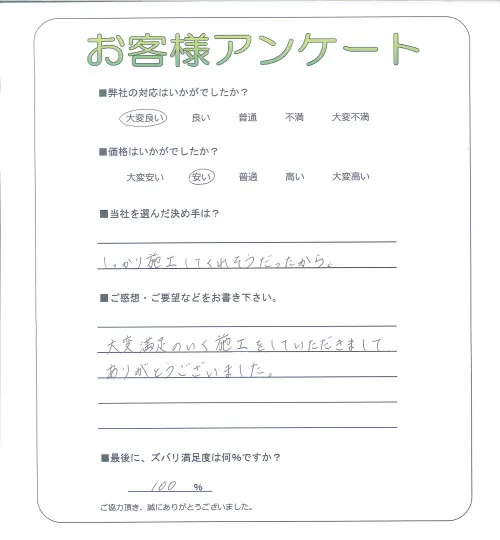 お客様アンケート
■弊社の対応はいかがでしたか？
大変良い 良い 普通 不満 大変不満
■価格はいかがでしたか？
大変安い 安い 普通 高い 大変高い
■当社を選んだ決め手は？
しっかり施工してくれそうだったから。
■ご感想・ご要望などをお書き下さい。
大変満足のいく施工をしていただきまして
ありがとうございました。
■最後に、ズバリ満足度は何%ですか？
100 %
ご協力頂き、誠にありがとうございました。